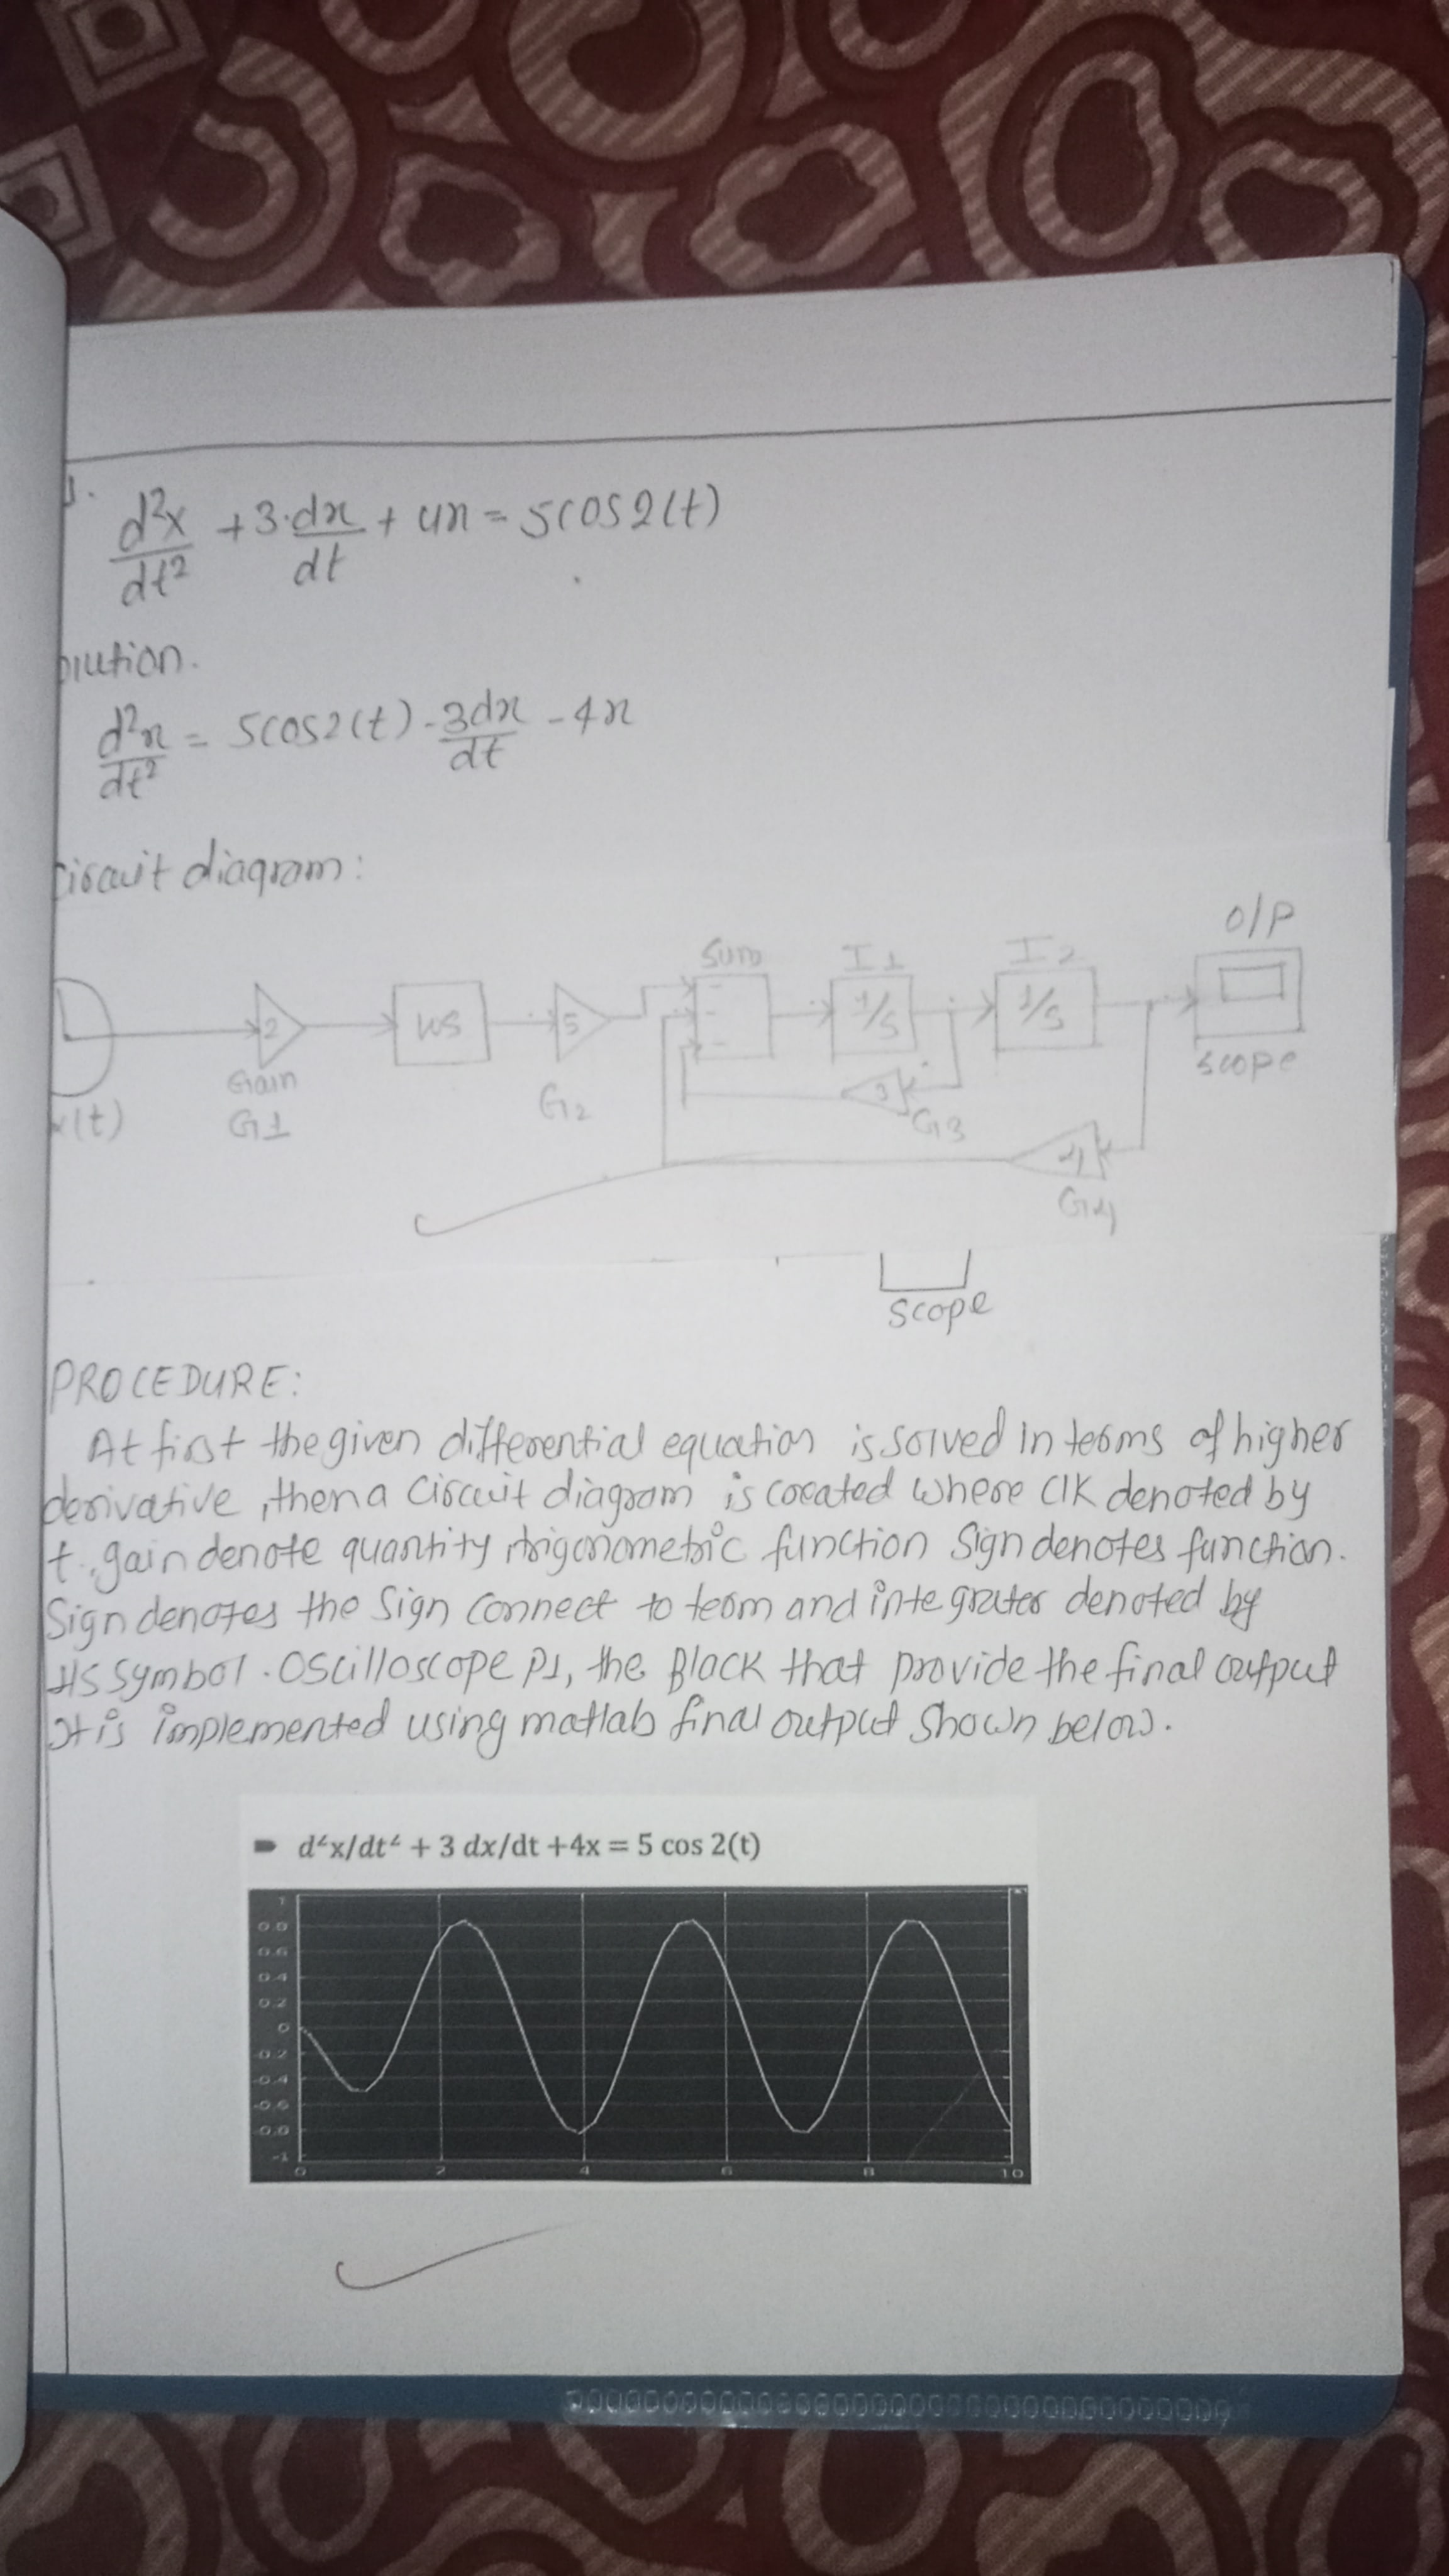 1.
d²x/dt² + 3·dx/dt + 4x = 5cos2(t)
olution.
d²x/dt² = 5cos2(t) - 3dx/dt - 4x
circuit diagram:
O/P
Sum I1 I2
2 5 - - - 1/s 1/s
scope
Gain
G1 G2 3 G3
k(t)
4
G4
Scope
PROCEDURE:
At first the given differential equation is solved in terms of higher
derivative, then a circuit diagram is created where Clk denoted by
t. gain denote quantity trigonometric function Sign denotes function.
Sign denotes the Sign connect to term and integrater denoted by
symbol. Oscilloscope the Block that provide the final output
It is implemented using matlab final output shown below.
d²x/dt² + 3 dx/dt +4x = 5 cos 2(t)
1
0.8
0.6
0.4
0.2
0
-0.2
-0.4
-0.6
-0.8
-1
0 2 4 6 8 10